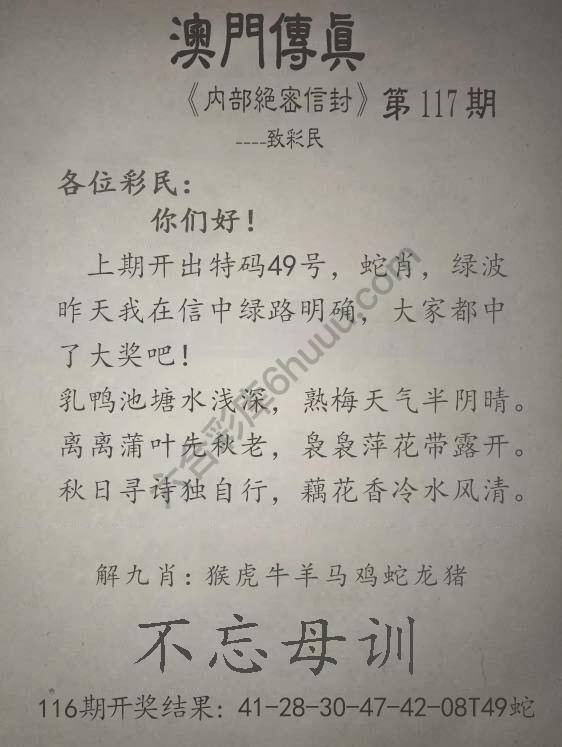 澳門傳眞
《内部絕密信封》第117期
----致彩民
各位彩民：
你们好！
上期开出特码49号，蛇肖，绿波
昨天我在信中绿路明确，大家都中
了大奖吧！
乳鸭池塘水浅深，熟梅天气半阴晴。
离离蒲叶先秋老，袅袅萍花带露开。
秋日寻诗独自行，藕花香冷水风清。
解九肖：猴虎牛羊马鸡蛇龙猪
不忘母训
116期开奖结果：41-28-30-47-42-08T49蛇
六合彩库6huuu.com